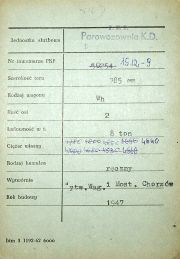 Jednostka służbowa
Parowozownia K.D.
Nr inwentarza PKP 15.12.-9
Szerokość toru 785 mm
Rodzaj wagonu Wh
Ilość osi 2
Ładowność w t. 8 ton
Ciężar własny 4640
Rodzaj hamulca ręczny
Wytwórnia Wytw.Wag. i Most. Chorzów
Rok budowy 1947